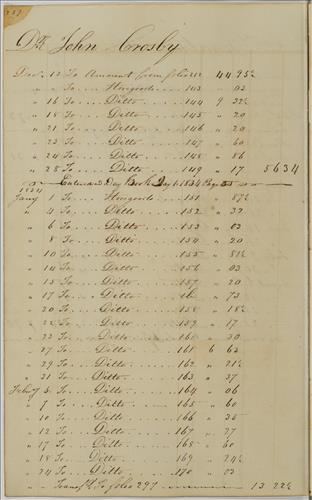 Dr John Crosby
Decr 12 To Amount from folio 44 95½
" " To Hmgoods 143 " 03
" 16 To Ditto 144 9 32½
" 18 To Ditto 145 " 20
" 21 To Ditto 146 " 20
" 23 To Ditto 147 " 60
" 24 To Ditto 148 " 86
" 28 To Ditto 149 " 17 56 34
Day Book
1834
Jany 1 To Hmgoods 151 " 87½
" 4 To Ditto 152 " 32
" 6 To Ditto 153 " 03
" 8 To Ditto 154 " 20
" 10 To Ditto 155 " 51½
" 14 To Ditto 156 " 03
" 15 To Ditto 157 " 20
" 17 To Ditto " 73
" 20 To Ditto 158 " 18½
" 22 To Ditto 159 " 17
" 22 To Ditto 160 " 30
" 27 To Ditto 161 6 63
" 29 To Ditto 162 " 21½
" 31 To Ditto 163 " 37
Feby To Ditto 164 " 06
" 7 To Ditto 165 " 60
" 10 To Ditto 166 " 35
" 12 To Ditto 167 " 77
" 17 To Ditto 168 " 60
" 18 To Ditto 169 " 74½
" 24 To Ditto 170 " 03
" Transfd To folio 297 13 22½